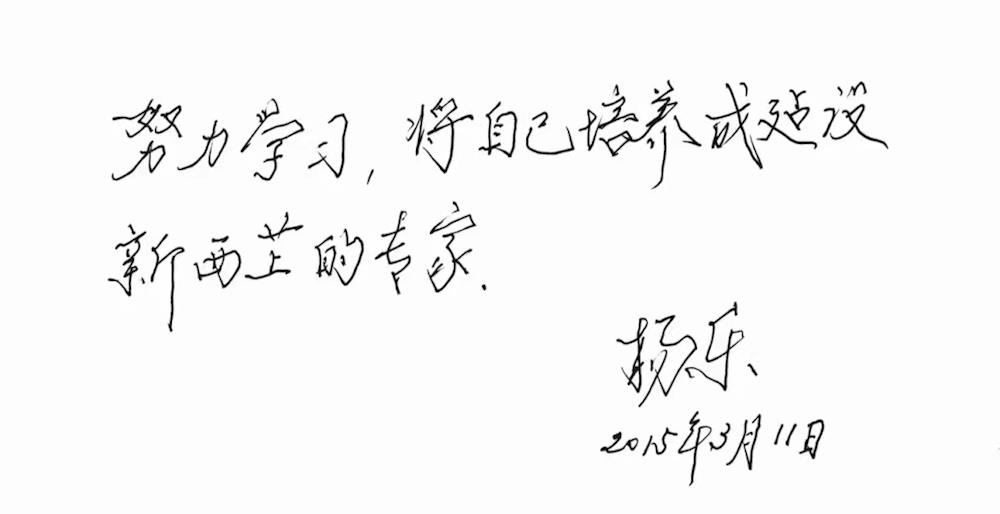 努力学习, 将自己培养成建设
新西藏的专家.
杨乐
2015年3月11日